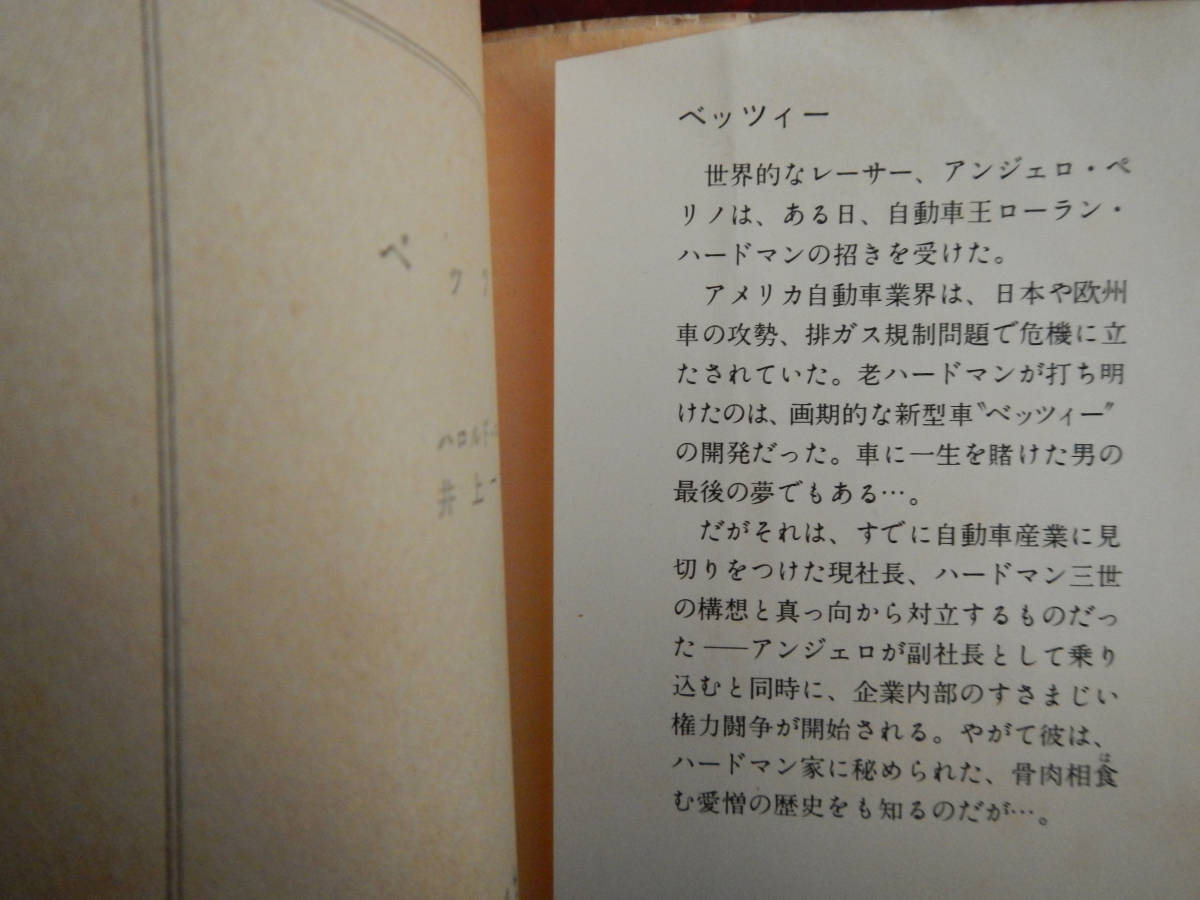 ベッ
ハロルド
井上一
ベッツィー
世界的なレーサー、アンジェロ・ペ
リノは、ある日、自動車王ローラン・
ハードマンの招きを受けた。
アメリカ自動車業界は、日本や欧州
車の攻勢、排ガス規制問題で危機に立
たされていた。老ハードマンが打ち明
けたのは、画期的な新型車〝ベッツィー〟
の開発だった。車に一生を賭けた男の
最後の夢でもある…。
だがそれは、すでに自動車産業に見
切りをつけた現社長、ハードマン三世
の構想と真っ向から対立するものだっ
た――アンジェロが副社長として乗り
込むと同時に、企業内部のすさまじい
権力闘争が開始される。やがて彼は、
ハードマン家に秘められた、骨肉相食
む愛憎の歴史をも知るのだが…。